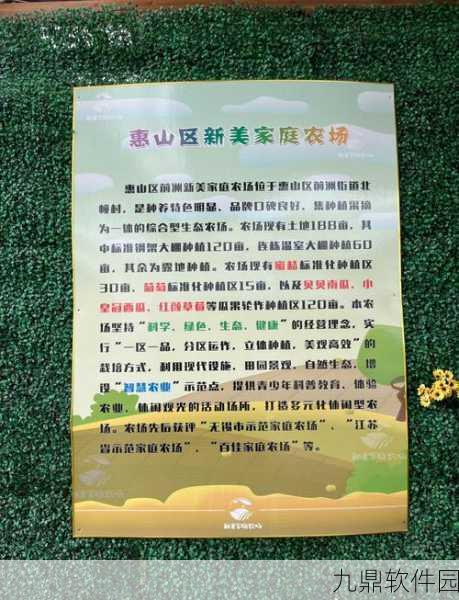 惠山区新美家庭农场
惠山区前洲新美家庭农场位于惠山区前洲街道北
幢村，是种养特色明显、品牌口碑良好，集种植果摘
为一体的综合型生态农场。农场现有土地188亩，其
中标准钢架大棚种植120亩，连栋温室大棚种植60
亩，其余为露地种植。农场现有蜜桔标准化种植区
30亩，葡萄标准化种植区15亩，以及贝贝南瓜、小
皇冠西瓜、红颜草莓等瓜果轮作种植区120亩。本农
场坚持“科学、绿色、生态、健康”的经营理念，实
行“一区一品，分区运作，立体种植，美观高效”的
栽培方式，利用现代设施，田园景观，自然生态，增
设“智慧农业”示范点，提供青少年科普教育、体验
农业、休闲观光的活动场所，打造多元化休闲型农
场。农场先后获评“无锡市示范家庭农场”、“江苏
省示范家庭农场”、“百佳家庭农场”等。
九鼎软件园